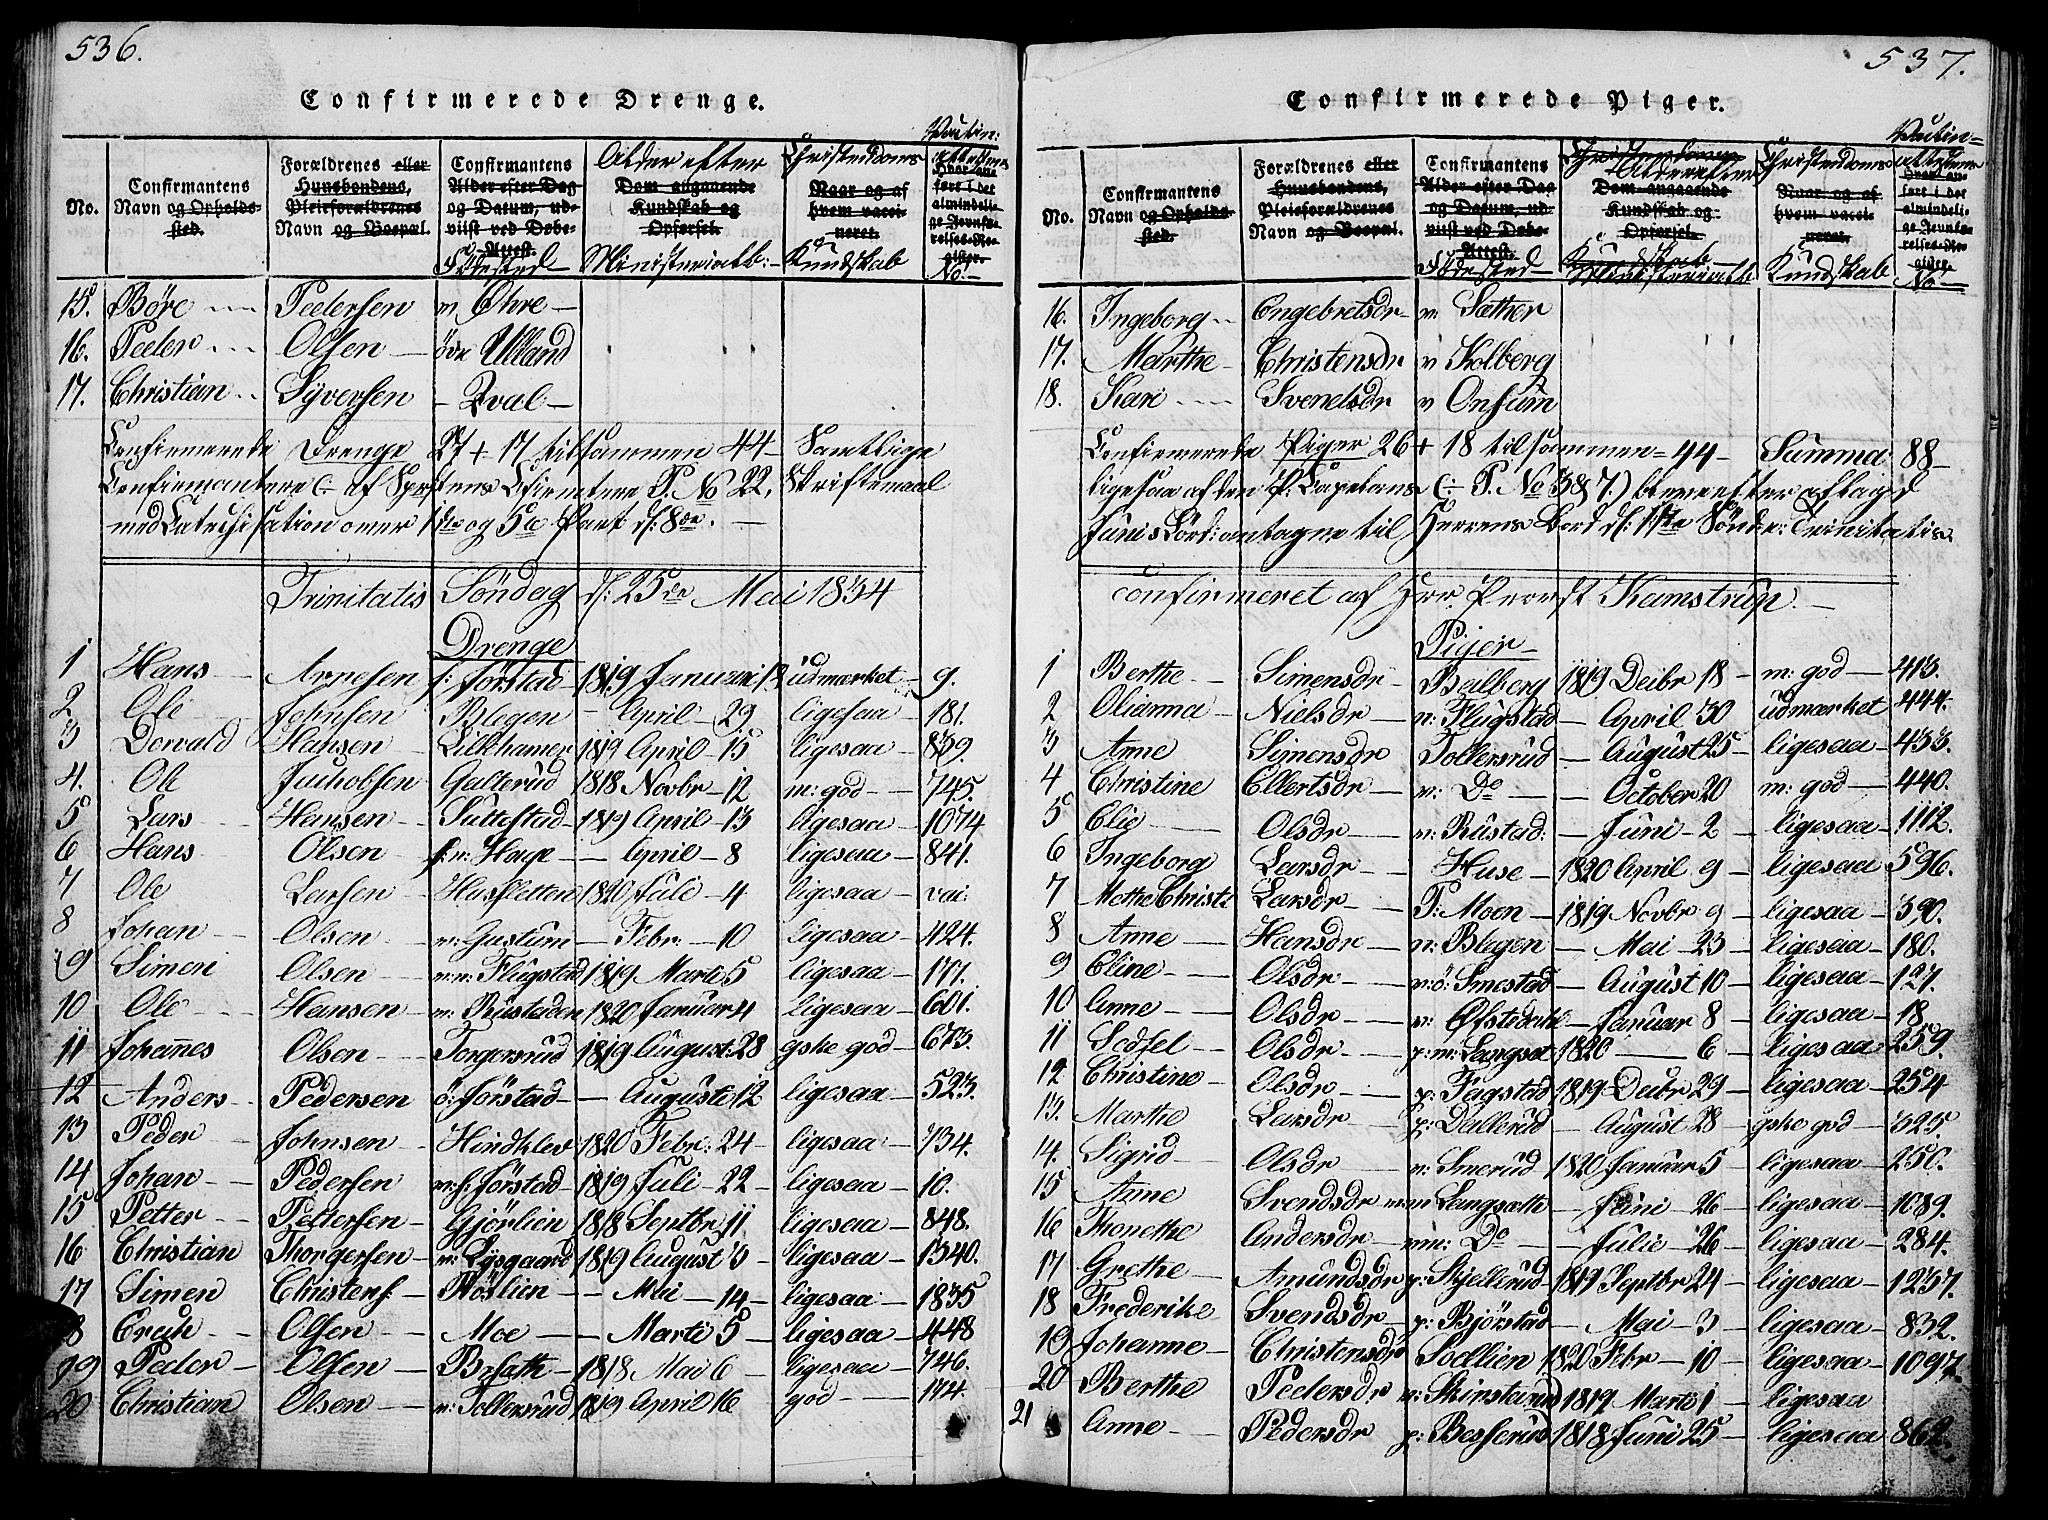 536.
Confirmerede Drenge.
No.
Confirmantens
Navn og Opholds-
sted.
Forældrenes eller
Huusbondens,
Pleieforældrenes
Navn og Boepæl.
Confirmantens
Alder efter Dag
og Datum, ud-
viist ved Døbe-
Attest.
Födested
Alder efter
Dom angaaende
Kundskab og
Opførsel.
Ministerialb:
Christendoms
Naar og af
hvem vacci-
neret.
Kundskab
Vaccin:
attestens
Hvor an-
ført i det
almindeli-
ge Jevnfø-
relses-Re-
gister.
No.
15. Böre Pedersen n Öhre
16. Peder Olsen övr Ulland
17. Christian Syversen Qval
Confirmerede Drenge 27 + 17 tilsammen 44 Samtlige
Confirmantere P. No 22. Skriftemaal
med Catechisation over 1ste og 5te Part d: 8de.
Trinitatis Söndag d: 25de Mai 1834
Drenge
1 Hans Arnesen f: Jörstad 1819 Januari 12 udmærket 9.
2 Ole Johnsen Blegen April 29 ligesaa 181.
3 Dorvald Hansen Lillehamer 1819 April 15 ligesaa 839.
4. Ole Jacobsen Galterud 1818 Novbr 12 m: god 745.
5 Lars Hansen Suttestad 1819 April 13 ligesaa 1074
6 Hans Olsen f: n: Hage April 8 ligesaa 841.
7 Ole Larsen Husfletten 1820 Juli 4 ligesaa vac:
8 Johan Olsen n: Gustum Febr: 10 ligesaa 424.
9 Simen Olsen m: n: Flugstad 1819 Marti 5 ligesaa 177.
10 Ole Hansen n: Rustaden 1820 Januar 4 ligesaa 601.
11 Johannes Olsen Torgersrud 1819 August: 28 gske god 673.
12 Anders Pedersen ö: Jörstad Augusti 12 ligesaa 523.
13 Peder Johnsen Hindklev 1820 Febr: 24 ligesaa 734.
14 Johan Pedersen n: f: Jörstad 1819 Juli 22 ligesaa 10.
15 Petter Pettersen Gjörlien 1818 Septbr 11 ligesaa 848.
16 Christian Thorgersen n: Lysgaard 1819 August 3 ligesaa 1340.
17 Simen Christens: Röslien Mai 14 ligesaa 1835
18 Erich Olsen Moe Marti 5 ligesaa 448
19 Peder Olsen Bræath 1818 Mai 6 ligesaa 746.
20 Christian Olsen n: Tollersrud 1819 April 16 god 174.
537.
Confirmerede Piger.
No.
Confirmantens
Navn og Opholds-
sted.
Forældrenes eller
Huusbondens,
Pleieforældrenes
Navn og Boepæl.
Confirmantens
Alder efter Dag
og Datum, ud-
viist ved Døbe-
Attest.
Födested
Christendoms
Alder efter
Dom angaaende
Kundskab og
Opførsel.
Kundskab
Ministerialb
Christendoms
Naar og af
hvem vacci-
neret.
Kundskab
Vaccin-
attestens
Hvor an-
ført i det
almindeli-
ge Jevnfø-
relses-Re-
gister.
No
16. Ingeborg Engebretsdr n: Sæther
17. Marthe Christensdr n Kolberg
18. Kari Svendsdr n Onsum
Confirmerede Piger 26 + 18 tilsammen = 44 Summa 88
ligesaa af den p. Capelans (: P. No 38 7.) blev efter aflagd
Junis Lörd: antagne til Herrens Bord d: 1ste Sönd: Trinitatis.
confirmeret af Hrr. Provst Kamstrup.
Piger
1 Berthe Simensdr Balberg 1819 Decbr 18 m: god 413.
2 Olianna Nielsdr n: Flugstad April 30 udmærket 444.
3 Anne Simensdr Tollersrud August 25 ligesaa 433.
4 Christine Ellertsdr n: Do October 20 m: god 440.
5 Elie Olsdr n: Rustad: Juni 2 ligesaa 1112.
6 Ingeborg Larsdr Huse 1820 April 9 ligesaa 596.
7 Mette Christi Larsdr P: Moen 1819 Novbr 9 ligesaa 390.
8 Anne Hansdr n: Blegen Mai 23 ligesaa 180.
9 Eline Olsdr n: ö: Smestad August 10 ligesaa 127.
10 Anne Olsdr n: Öfstedrik Januar 8 ligesaa 18.
11 Sedsel Olsdr p: m: Langset 1820 6 ligesaa 259.
12 Christine Olsdr p: Fagstad 1819 Decbr 29 ligesaa 254
13. Marthe Larsdr p: Dallerud August 28 gske god 325.
14. Sigrid Olsdr n: Smerud 1820 Januar 5 ligesaa 250.
15 Anne Svendsdr m: n Langsæth Juni 26 ligesaa 1089.
16 Thonethe Andersdr m: Do Julie 26 ligesaa 284.
17 Grethe Amundsdr p: Skjellerud 1819 Septbr 24 ligesaa 1237.
18 Frederike Svendsdr p: Björstad Mai 3 ligesaa 832.
19 Johanne Christensdr Sollien 1820 Febr 10 ligesaa 1097.
20 Berthe Pedersdr n: Skinstarud 1819 Marti 1 ligesaa
21 Anne Pedersdr p: Besserud 1818 Juni 25 ligesaa 862.